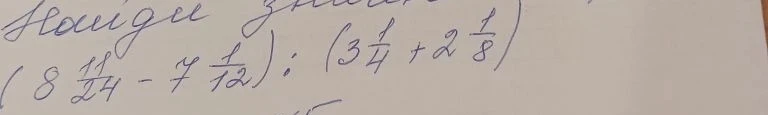 Найди
(8 11/24 - 7 1/12) : (3 1/4 + 2 1/8)